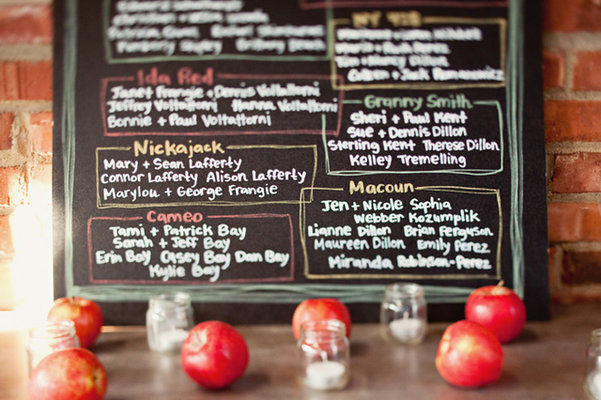 Colleen + Jack Romanowicz
Ida Red
Janet Frangie + Dennis Voltattorni
Jeffrey Voltattorni Hanna Voltattorni
Bonnie + Paul Voltattorni
Granny Smith
Sheri + Paul Kent
Sue + Dennis Dillon
Sterling Kent Therese Dillon
Kelley Tremelling
Nickajack
Mary + Sean Lafferty
Connor Lafferty Alison Lafferty
Marylou + George Frangie
Macoun
Jen + Nicole Saphia
Webber Kozumplik
Lianne Dillon Brian Ferguson
Maureen Dillon Emily Perez
Miranda Robinson-Perez
Cameo
Tami + Patrick Bay
Sarah + Jeff Bay
Erin Bay Casey Bay Dan Bay
Kylie Bay